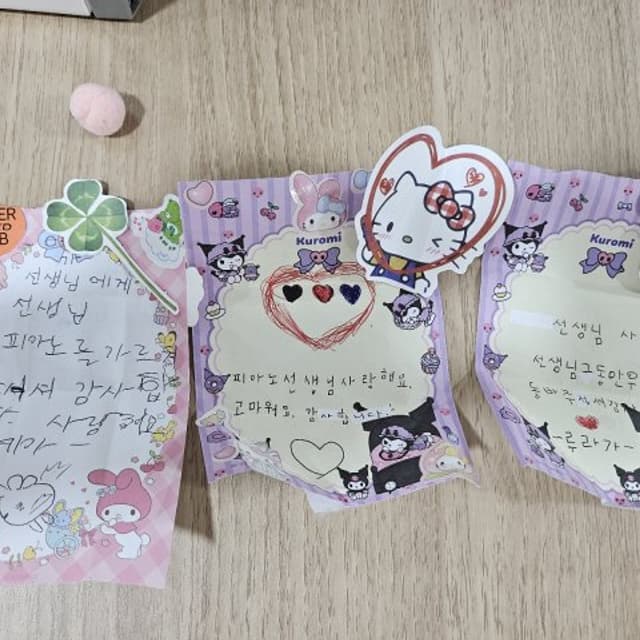 선생님에게
선생님
피아노를가르
셔서 감사합
사랑해요
Kuromi
피아노선생님사랑해요.
고마워요. 감사합니다!
Kuromi
선생님 사
선생님그동안
-루라가-